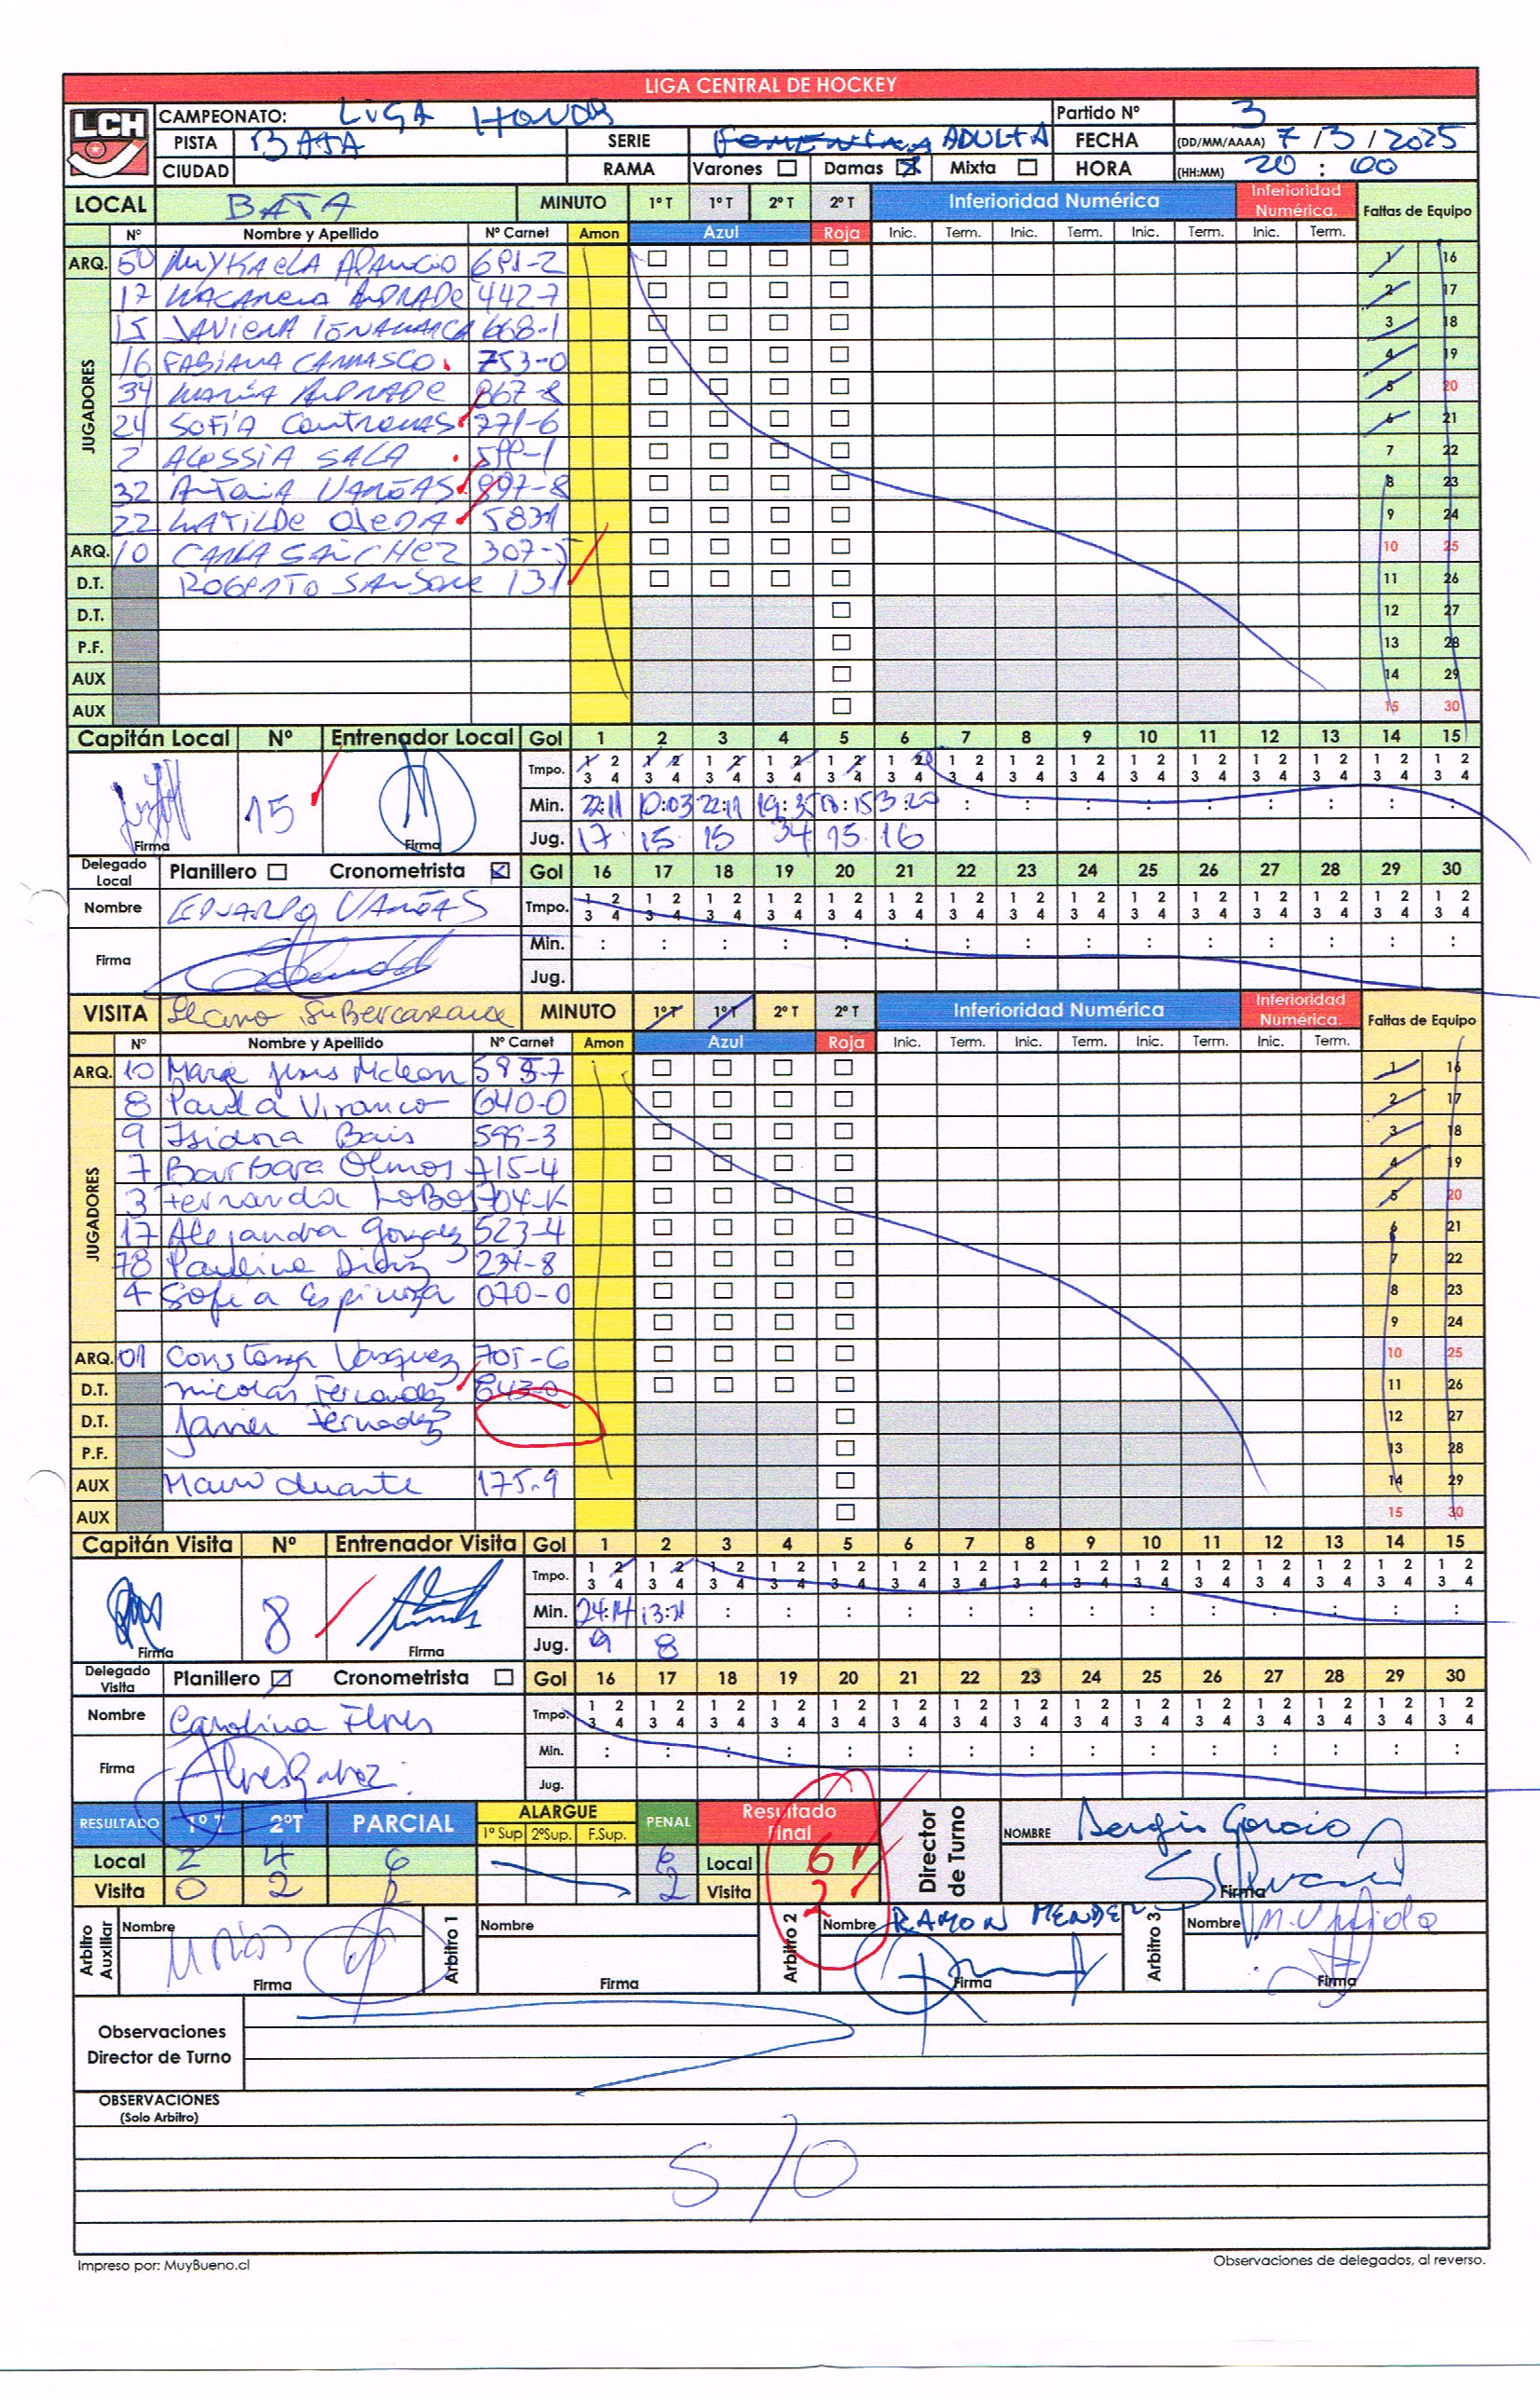 LIGA CENTRAL DE HOCKEY
LCH
CAMPEONATO: LIGA HONOR Partido Nº 3
PISTA BATA SERIE FEMENINA ADULTA FECHA (DD/MM/AAAA) 7/3/2025
CIUDAD RAMA Varones Damas X Mixta HORA (HH:MM) 20:00
LOCAL BATA MINUTO 1º T 1º T 2º T 2º T Inferioridad Numérica Inferioridad Numérica. Faltas de Equipo
Nº Nombre y Apellido Nº Carnet Amon Azul Roja Inic. Term. Inic. Term. Inic. Term. Inic. Term.
ARQ. 50 691-2 1 16
JUGADORES
17 MACARENA ANDRADE 442-7 2 17
15 JAVIERA 668-1 3 18
16 FABIANA CARRASCO 753-0 4 19
34 MARÍA ANDRADE 867-8 5 20
24 SOFÍA CONTRERAS 771-6 6 21
2 ALESSIA SALA 599-1 7 22
32 ANTONIA VARGAS 897-8 8 23
22 MATILDE OJEDA 5831 9 24
ARQ. 10 CARLA SANCHEZ 307-5 10 25
D.T. ROBERTO 131 11 26
D.T. 12 27
P.F. 13 28
AUX 14 29
AUX 15 30
Capitán Local Nº Entrenador Local Gol 1 2 3 4 5 6 7 8 9 10 11 12 13 14 15
Tmpo. 1 2 3 4 1 2 3 4 1 2 3 4 1 2 3 4 1 2 3 4 1 2 3 4 1 2 3 4 1 2 3 4 1 2 3 4 1 2 3 4 1 2 3 4 1 2 3 4 1 2 3 4 1 2 3 4 1 2 3 4
15 Min. 22:11 10:03 22:11 19:35 13:15 3:20 : : : : : : : : :
Firma Firma Jug. 17 15 15 34 15 16
Delegado Local Planillero Cronometrista X Gol 16 17 18 19 20 21 22 23 24 25 26 27 28 29 30
Nombre EDUARDO VARGAS Tmpo. 1 2 3 4 1 2 3 4 1 2 3 4 1 2 3 4 1 2 3 4 1 2 3 4 1 2 3 4 1 2 3 4 1 2 3 4 1 2 3 4 1 2 3 4 1 2 3 4 1 2 3 4 1 2 3 4 1 2 3 4
Firma Min. : : : : : : : : : : : : : : :
Jug.
VISITA MINUTO 1º T 1º T 2º T 2º T Inferioridad Numérica Inferioridad Numérica. Faltas de Equipo
Nº Nombre y Apellido Nº Carnet Amon Azul Roja Inic. Term. Inic. Term. Inic. Term. Inic. Term.
ARQ. 10 Jesus Mclean 585-7 1 16
JUGADORES
8 Paula 640-0 2 17
9 Isidora Bais 599-3 3 18
7 Barbara Olmos 715-4 4 19
3 Fernanda Lobos 704-K 5 20
17 Alejandra 523-4 6 21
78 Paulina Diaz 234-8 7 22
4 Sofia Espinoza 070-0 8 23
9 24
ARQ. 01 Constanza Vasquez 705-6 10 25
D.T. Nicolas Fernandez 643-0 11 26
D.T. Javier Fernadez 12 27
P.F. 13 28
AUX Mauro duarte 175-9 14 29
AUX 15 30
Capitán Visita Nº Entrenador Visita Gol 1 2 3 4 5 6 7 8 9 10 11 12 13 14 15
Tmpo. 1 2 3 4 1 2 3 4 1 2 3 4 1 2 3 4 1 2 3 4 1 2 3 4 1 2 3 4 1 2 3 4 1 2 3 4 1 2 3 4 1 2 3 4 1 2 3 4 1 2 3 4 1 2 3 4 1 2 3 4
8 Min. 24:14 13:21 : : : : : : : : : : : : :
Firma Firma Jug. 9 8
Delegado Visita Planillero Cronometrista Gol 16 17 18 19 20 21 22 23 24 25 26 27 28 29 30
Nombre Carolina Flores Tmpo. 1 2 3 4 1 2 3 4 1 2 3 4 1 2 3 4 1 2 3 4 1 2 3 4 1 2 3 4 1 2 3 4 1 2 3 4 1 2 3 4 1 2 3 4 1 2 3 4 1 2 3 4 1 2 3 4 1 2 3 4
Firma Min. : : : : : : : : : : : : : : :
Jug.
RESULTADO 1º T 2ºT PARCIAL ALARGUE 1ª Sup 2ºSup. F.Sup. PENAL Resultado Final Director de Turno NOMBRE Sergio
Local 2 4 6 6 Local 6
Visita 0 2 2 2 Visita 2 Firma
Arbitro Auxiliar Nombre Arbitro 1 Nombre Arbitro 2 Nombre RAMON MENDEZ Arbitro 3 Nombre
Firma Firma Firma Firma
Observaciones
Director de Turno
OBSERVACIONES
(Solo Arbitro)
S/O
Impreso por: MuyBueno.cl Observaciones de delegados, al reverso.